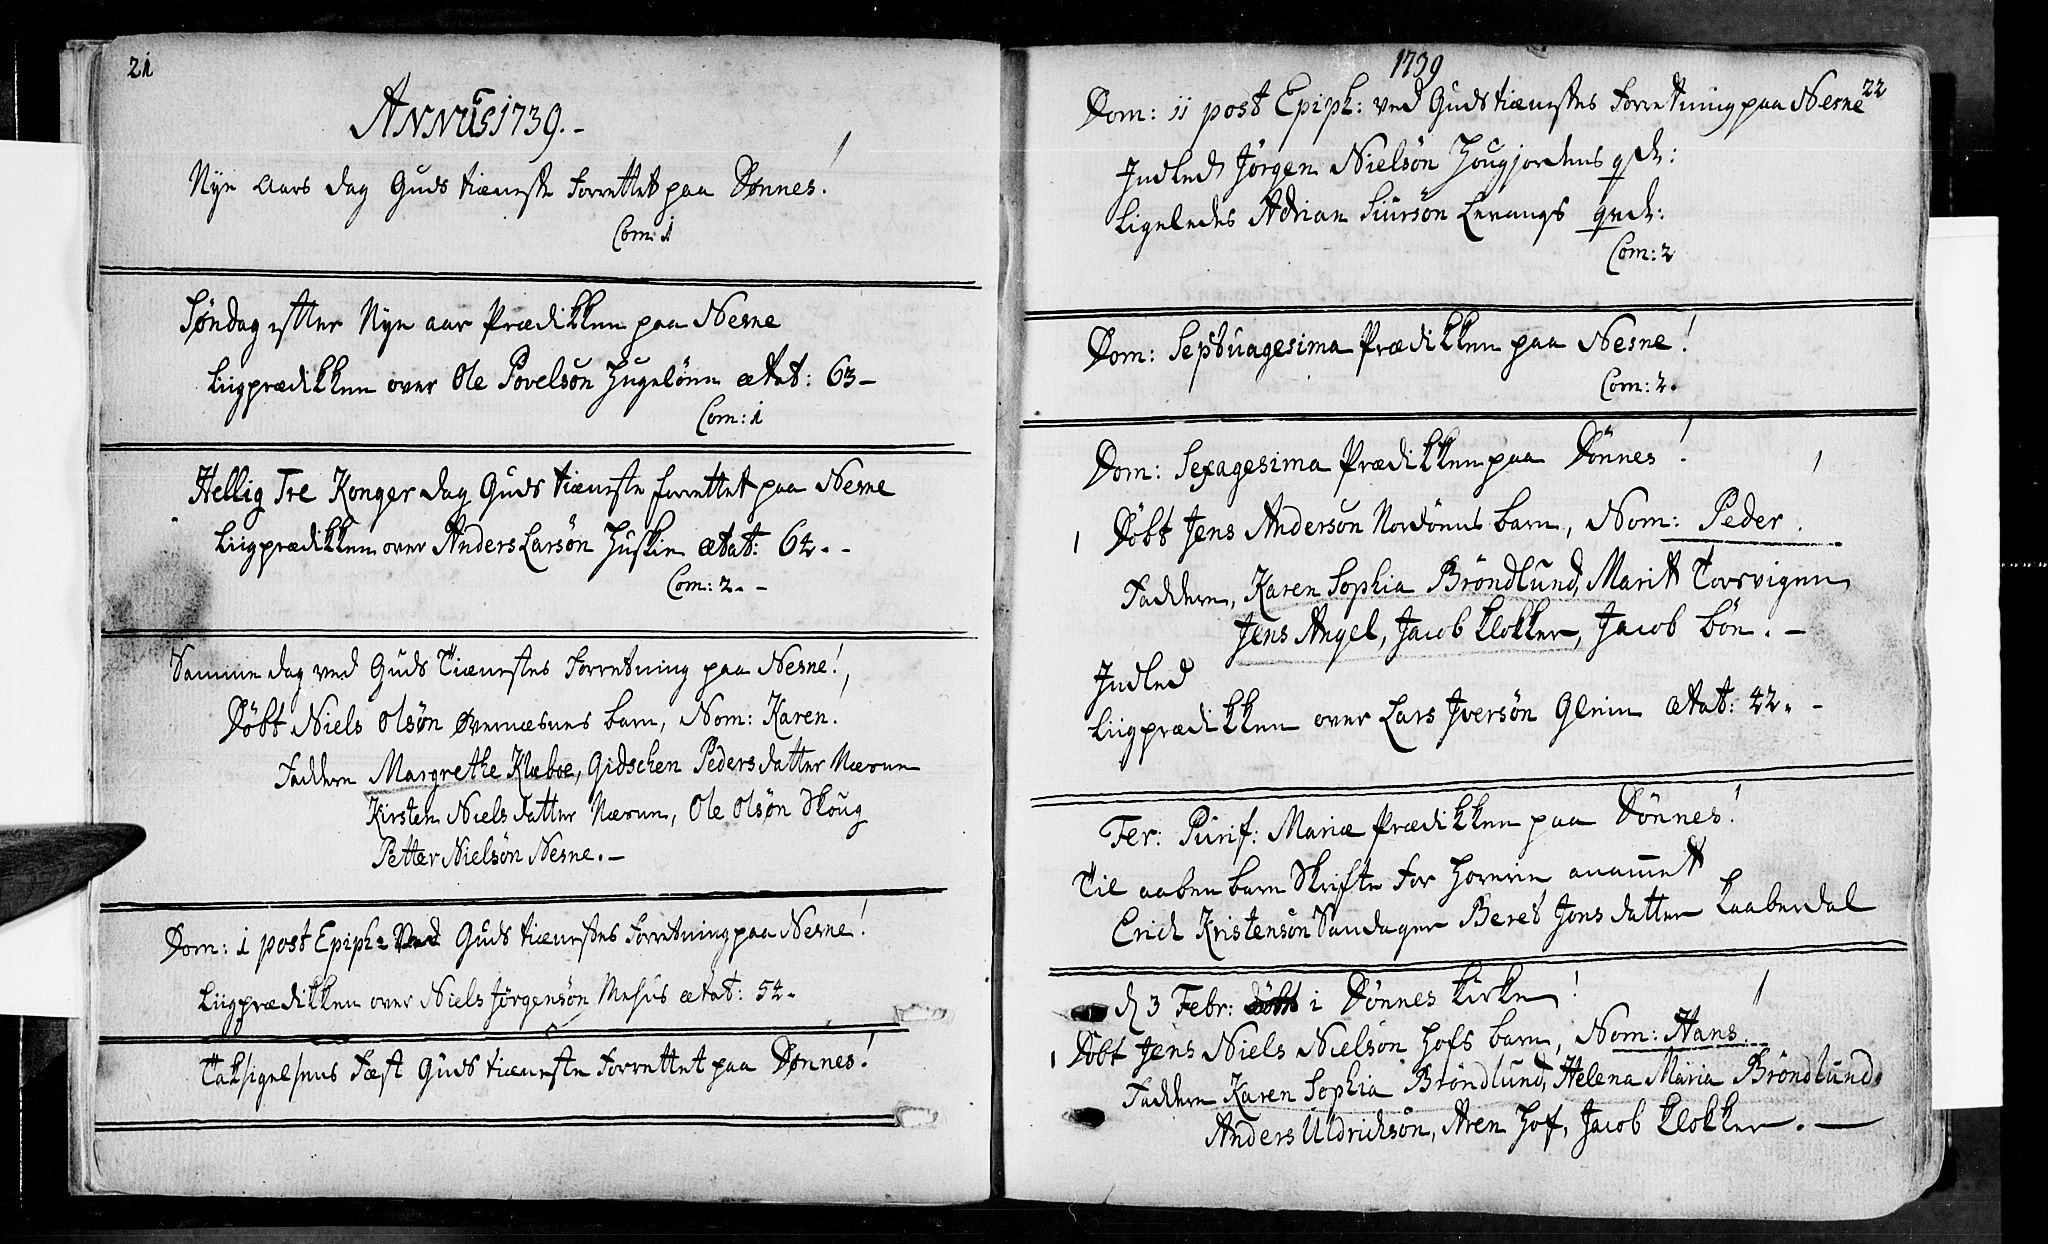 21
ANNUS 1739.-
Nÿe Aars dag Guds tieneste forrettet paa Dønnes!
Com: 1
Søndag efter Nÿe aar Prædikken paa Nesne
Liigprædikken over Ole Povelsön Hugelöen ætat: 63-
Com: 1
Hellig Tre Konger dag Guds tieneste forrettet paa Nesne
Liigprædikken over Anders Larsön Huskin ætat: 64.-
Com: 2.-
Samme dag ved Guds Tienestes forretning paa Nesne!
Döbt Niels Olsön Øvernæsnes barn, Nom: Karen.
Faddere Margrethe Klæboe, Gidschen Peders datter
Kirsten Niels datter, Ole Olsön Skoug
Petter Nielsön Nesne.-
Dom: 1 post Epiph: Ved Guds tienestes forretning paa Nesne!
Liigprædikken over Niels Jörgensön ætat: 54.
Taksigelsens Fest Guds tieneste forrettet paa Dønnes!
1739
22
Dom: 11 post Epiph: ved Guds tienestes forretning paa Nesne
Indled Jörgen Nielsön Hougjordens qvd:
Ligeledes Adrian Siursön Levangs qvd:
Com: 2
Dom: Septuagesima Prædikken paa Nesne!
Com: 2.
Dom: Sexagesima Prædikken paa Dönnes!
1 Döbt Jens Andersön Nordöens barn, Nom: Peder.
Faddere, Karen Sophia Bröndlund, Marit Torsvigen
Jens Angel, Jacob Klokker, Jacob Bön.-
Indled
Liigprædikken over Lars Iversön Glein ætat: 42.-
Fer: Purif: Mariæ Prædikken paa Dönnes!
Til aabenbare Skrifte for Horerie anammet
Erich Kristensön Sandager Beret Jons datter Laaberdal
d 3 Febr: i Dönnes Kirke!
1 Döbt Jens Niels Nielsön Hofs barn, Nom: Hans.
Faddere Karen Sophia Bröndlund, Helena Maria Bröndlund.
Anders Uldrichsön, Aren Hof, Jacob Klokker.-